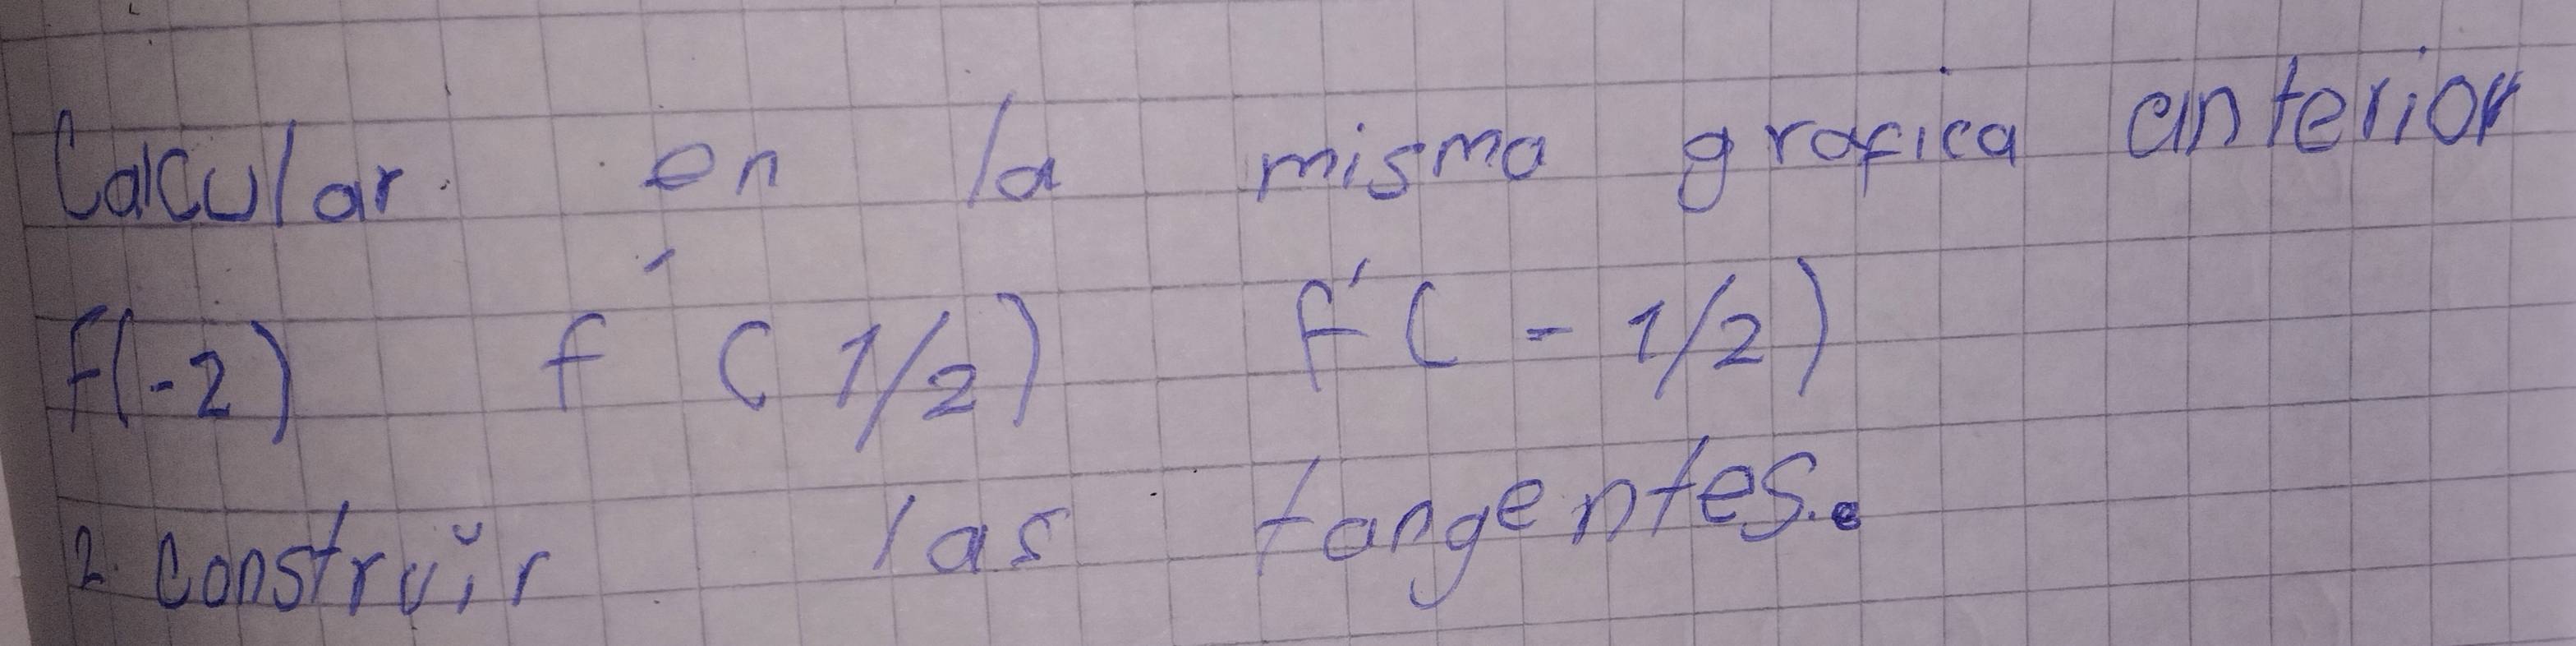 Calcular en la misma grafica anterior
f(-2) f´(1/2) f´(-1/2)
2. construir las tangentes.